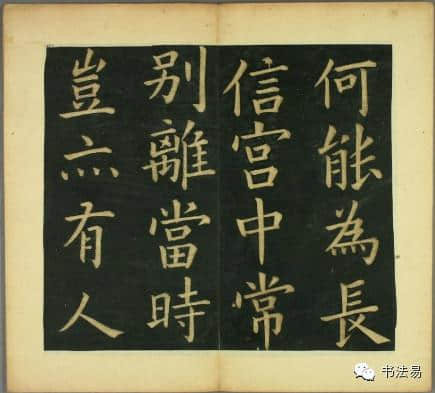 何能為長
信宮中常
別離當時
豈亦有人
书法易